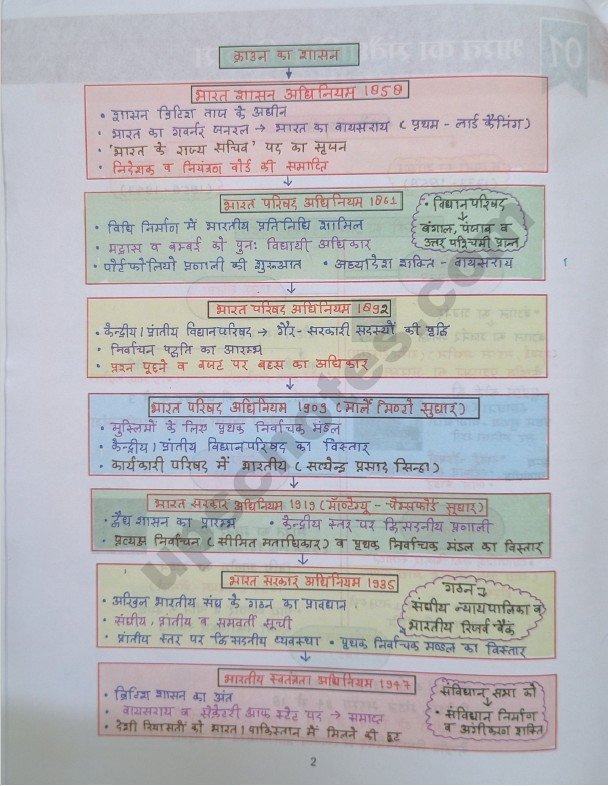 01 भारत का
क्राउन का शासन
भारत शासन अधिनियम 1858
• शासन ब्रिटिश ताज के अधीन
• भारत का गवर्नर जनरल → भारत का वायसराय (प्रथम - लार्ड कैनिंग)
• 'भारत के राज्य सचिव' पद का सृजन
• निदेशक व नियंत्रण बोर्ड की समाप्ति
भारत परिषद अधिनियम 1861
• विधि निर्माण में भारतीय प्रतिनिधि शामिल
• मद्रास व बम्बई को पुनः विधायी अधिकार
• पोर्टफोलियो प्रणाली की शुरूआत • अध्यादेश शक्ति - वायसराय
• विधानपरिषद
↓
बंगाल, पंजाब व
उत्तर पश्चिमी प्रान्त
भारत परिषद अधिनियम 1892
• केन्द्रीय/प्रांतीय विधानपरिषद → गैर-सरकारी सदस्यों की वृद्धि
• निर्वाचन पद्धति का आरम्भ
• प्रश्न पूछने व बजट पर बहस का अधिकार
भारत परिषद अधिनियम 1909 (मार्ले मिण्टो सुधार)
• मुस्लिमों के लिए पृथक निर्वाचक मंडल
• केन्द्रीय/प्रांतीय विधानपरिषद का विस्तार
• कार्यकारी परिषद में भारतीय (सत्येन्द्र प्रसाद सिन्हा)
भारत सरकार अधिनियम 1919 (मॉण्टेग्यू - चैम्सफोर्ड सुधार)
• द्वैध शासन का प्रारम्भ • केन्द्रीय स्तर पर द्विसदनीय प्रणाली
• प्रत्यक्ष निर्वाचन (सीमित मताधिकार) व पृथक निर्वाचक मंडल का विस्तार
भारत सरकार अधिनियम 1935
• अखिल भारतीय संघ के गठन का प्रावधान
• संघीय, प्रांतीय व समवर्ती सूची
• प्रांतीय स्तर पर द्विसदनीय व्यवस्था • पृथक निर्वाचक मण्डल का विस्तार
गठन
संघीय न्यायपालिका व
भारतीय रिजर्व बैंक
भारतीय स्वतंत्रता अधिनियम 1947
• ब्रिटिश शासन का अंत
• वायसराय व सेक्रेटरी आफ स्टेट पद → समाप्त
• देशी रियासतों को भारत/पाकिस्तान में मिलने की छूट
संविधान सभा को
↓
• संविधान निर्माण
व अंगीकरण शक्ति
2
upscnotes.com